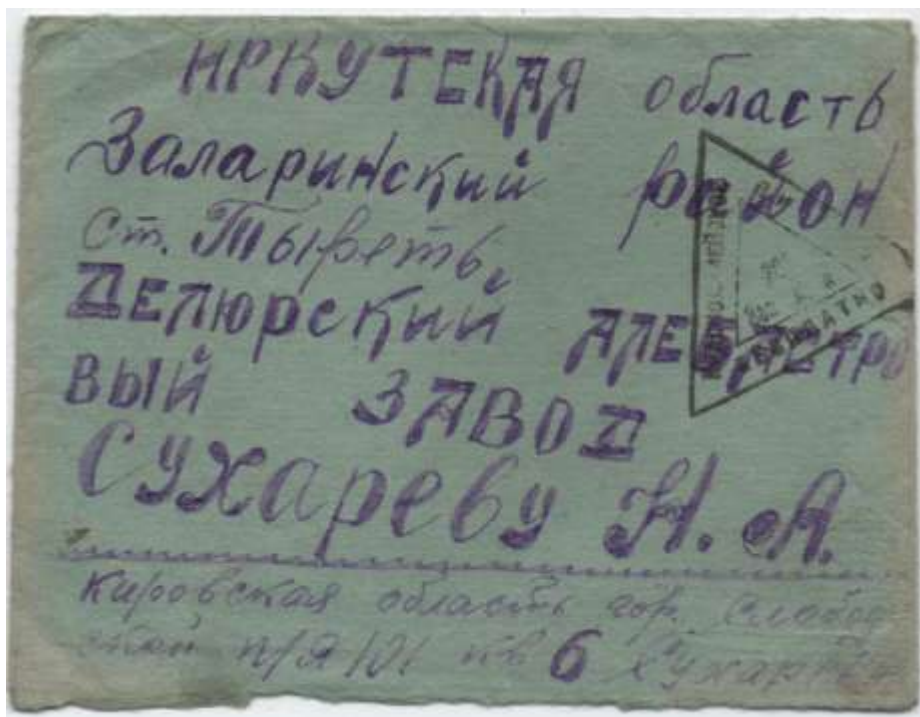 ИРКУТСКАЯ область
Заларинский район
ст. Тыреть,
ДЕЛЮРский АЛЕБАСТРО
ВЫЙ ЗАВОД
СУХАРЕВУ Н. А.
Кировская область гор. Слобод
ской п/я 101 кв 6
БЕСПЛАТНО